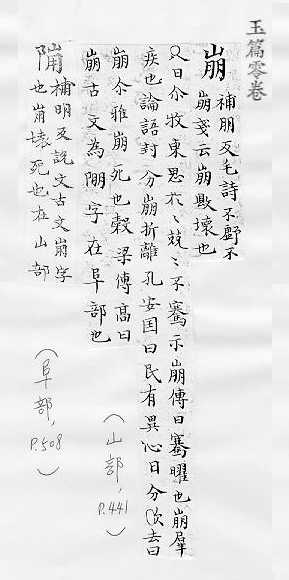 玉篇零卷
崩
補朋反毛詩不虧不
崩戔云崩毀壞也
又曰尒牧東思矜〻兢〻不騫示崩傳曰騫曜也崩羣
疾也論語封分崩折離孔安国曰民有異沁曰分欲去曰
崩尒雅崩死也穀梁傳高曰
崩古文為𨹹字在阜部也
(山部, P.441)
𨹹
補明反說文古文崩字
也崩壞死也在山部
(阜部, P.508)